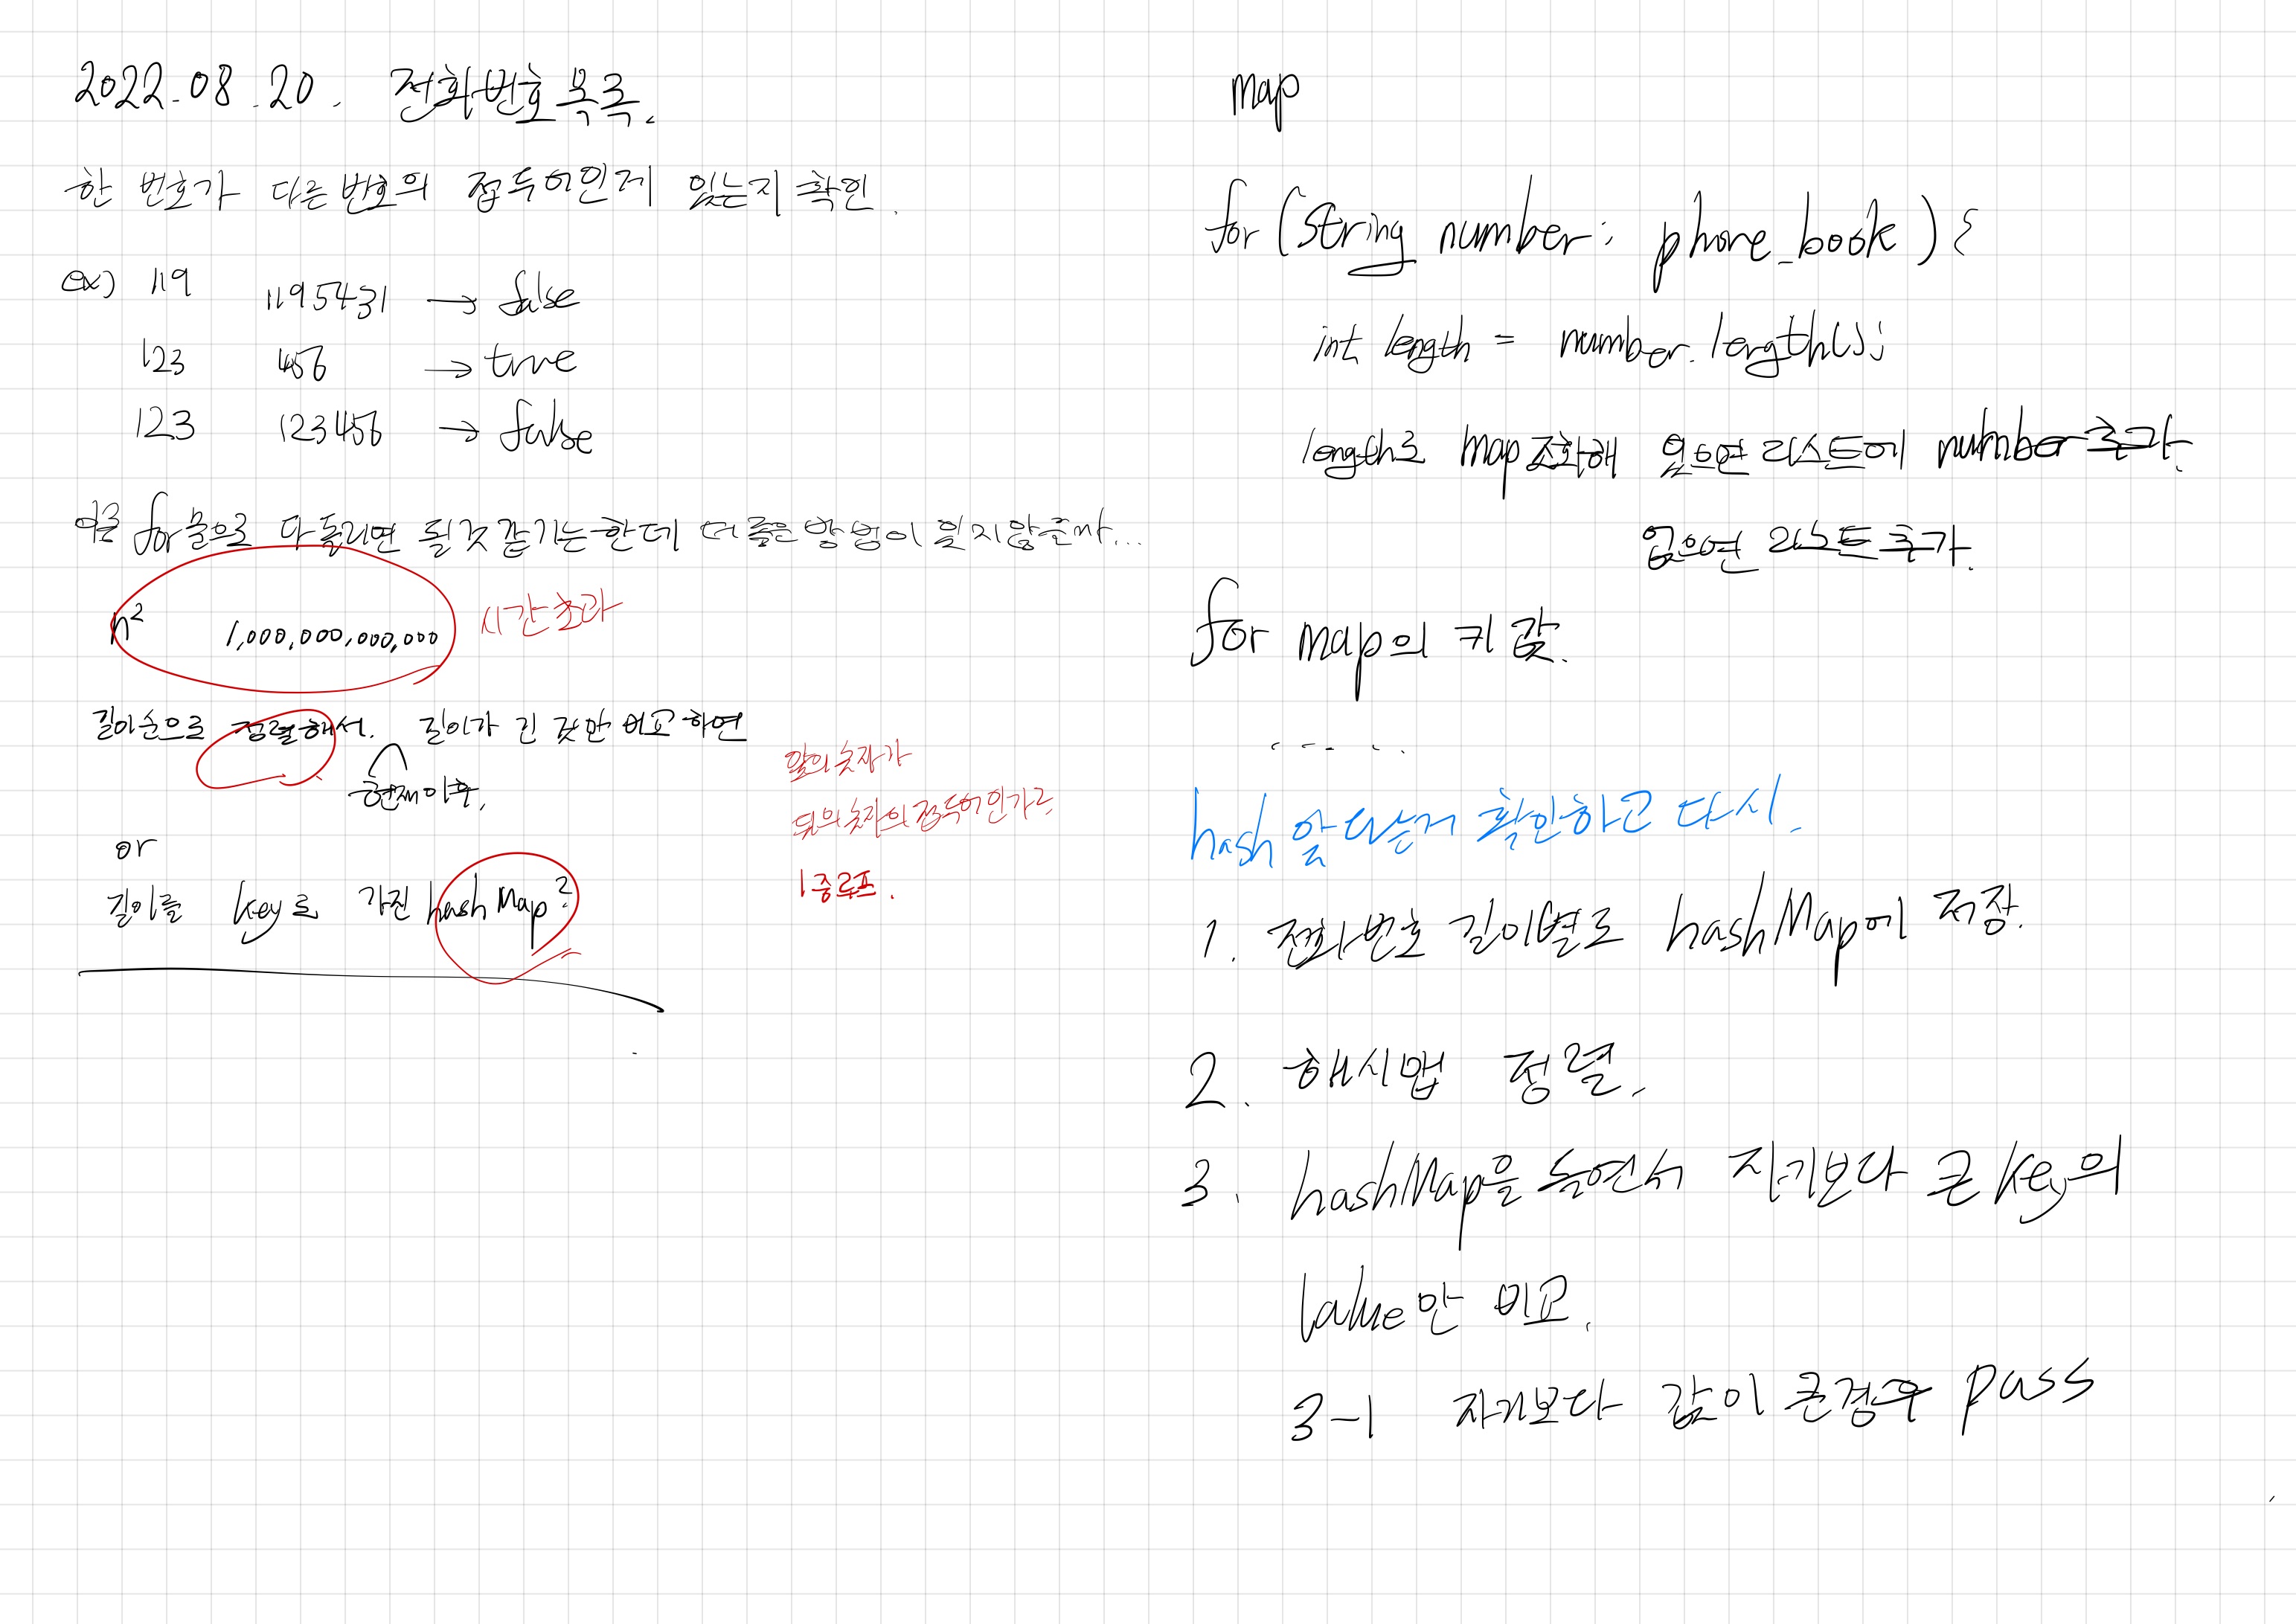 2022.08.20. 전화번호 목록.
한 번호가 다른 번호의 접두어인게 있는지 확인.
ex) 119 1195431 → false
123 456 → true
123 123456 → false
이중 for문으로 다 돌리면 될것 같기는한데 더 좋은 방법이 있지않을까...
n² 1,000,000,000,000 시간초과
길이순으로 정렬해서. 길이가 긴 것만 비교하면
현재이후.
앞의 숫자가
뒤의 숫자의 접두어인가로
1중루프.
or
길이를 key로 가진 hashMap?
map
for (String number : phone_book) {
int length = number.length();
length로 map 조회해 있으면 리스트에 number 추가.
없으면 리스트 추가.
for map의 키 값.
......
hash 앞 다는거 확인하고 다시.
1. 전화번호 길이별로 hashMap에 저장.
2. 해시맵 정렬.
3. hashMap을 돌면서 자기보다 큰 key의
value만 비교.
3-1 자기보다 값이 큰경우 pass